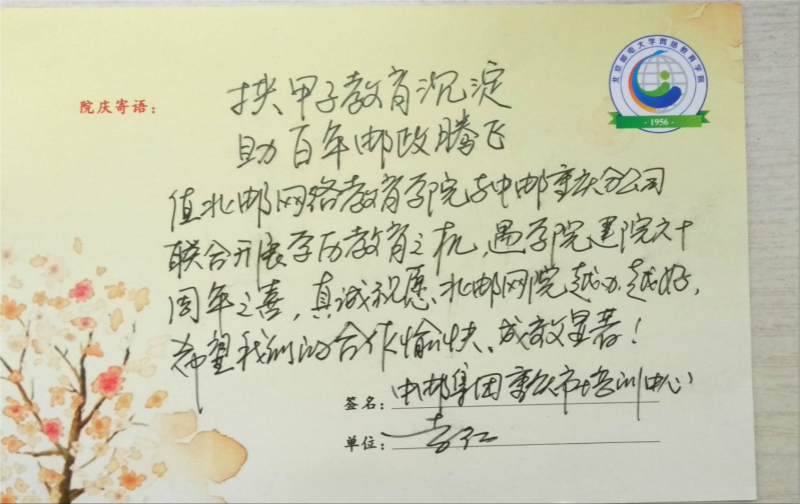 北京邮电大学网络教育学院
·1956·
院庆寄语：
扶甲子教育沉淀
助百年邮政腾飞
值北邮网络教育学院与中邮重庆分公司
联合开展学历教育之机，遇学院建院六十
周年之喜，真诚祝愿、北邮网院越办越好，
希望我们的合作愉快、成效显著！
签名：中邮集团重庆市培训中心
单位：